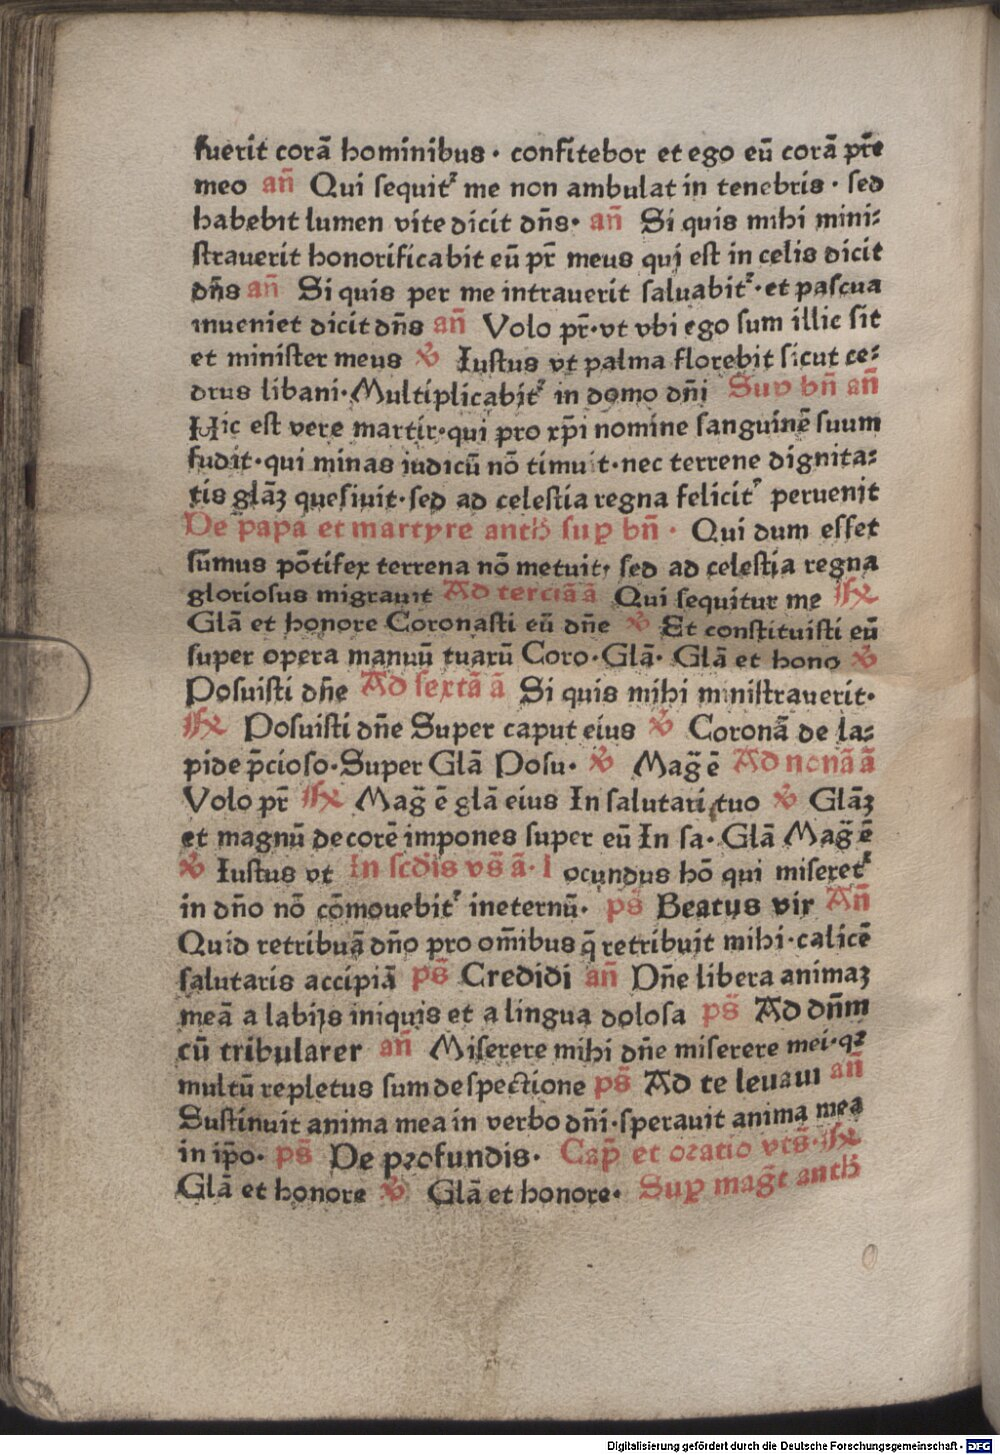 fuerit corã hominibus · confitebor et ego eũ corã pr̃e
meo añ Qui sequit᷑ me non ambulat in tenebris · sed
habebit lumen vite dicit dñs· añ Si quis mihi mini:
strauerit honorificabit eũ pr̃ meus qui est in celis dicit
dñs añ Si quis per me intrauerit saluabit᷑·et pascua
inueniet dicit dñs añ Volo pr̃·vt vbi ego sum illic sit
et minister meus ℣ Iustus vt palma florebit sicut ce:
drus libani·Multiplicabit᷑ in domo dñi Suꝑ bñ añ
Hic est vere martir·qui pro xp̃i nomine sanguinẽ suum
fudit·qui minas iudicũ nõ timuit·nec terrene dignita:
tis glãꝫ quesiuit·sed ad celestia regna felicit᷑ peruenit
De papa et martyre anth̃ suꝑ bñ · Qui dum esset
sũmus põtifex terrena nõ metuit, sed ad celestia regna
gloriosus migrauit Ad terciã ã Qui sequitur me ℟
Glã et honore Coronasti eũ dñe ℣ Et constituisti eũ
super opera manuũ tuarũ Coro·Glã· Glã et hono ℣
Posuisti dñe Ad sextã ã Si quis mihi ministrauerit·
℟ Posuisti dñe Super caput eius ℣ Coronã de la:
pide p̃cioso·Super Glã Posu· ℣ Mag̃ ẽ Ad nonã ã
Volo pr̃ ℟ Mag̃ ẽ glã eius In salutari tuo ℣ Glãꝫ
et magnũ decorẽ impones super eũ In sa· Glã Mag̃ ẽ
℣ Iustus vt In scd̃is vs̃ ã· I ocundus hõ qui miseret᷑
in dño nõ cõmouebit᷑ ineternũ· ps̃ Beatus vir Añ
Quid retribuã dño pro om̃ibus q̃ retribuit mihi·calicẽ
salutaris accipiã ps̃ Credidi añ Dñe libera animaꝫ
meã a labijs iniquis et a lingua dolosa ps̃ Ad dñm
cũ tribularer añ Miserere mihi dñe miserere mei·qꝛ
multũ repletus sum despectione ps̃ Ad te leuaui añ
Sustinuit anima mea in verbo dñi·sperauit anima mea
in ip̃o· ps̃ De profundis· Cap̃ et oratio vts̃·℟
Glã et honore ℣ Glã et honore· Suꝑ mag̃t anth̃
Digitalisierung gefördert durch die Deutsche Forschungsgemeinschaft - DFG